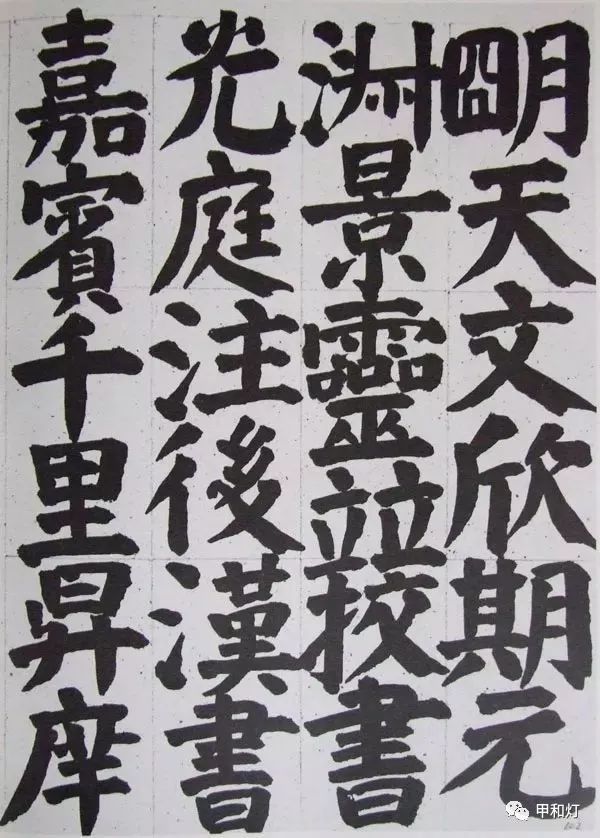 朙天文欣期元
淵景靈竝挍書
光庭注後漢書
嘉賓千里昇
甲和灯